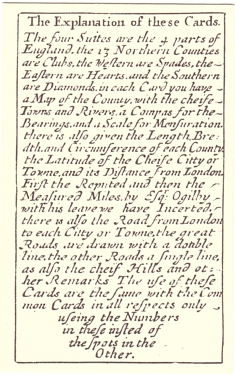 The Explanation of these Cards.
The four Suites are the 4 parts of
England, the 13 Northern Counties
are Clubs, the Western are Spades, the
Eastern are Hearts, and the Southern
are Diamonds, in each Card you have
a Map of the County, with the cheife
Towns and Rivers, a Compas, for the
Bearings, and a Scale for Mensuration,
there is also given the Length, Bre=
dth, and Circumference of each County,
the Latitude of the Cheife Citty or
Towne, and its Distance from London
First the Reputed and then the
Measured Miles, by Esq: Ogilby
with his leave we have Incerted,
there is also the Road, from London
to each Citty or Towne, the great
Roads are drawn with a double
line, the other Roads a single line,
as also the cheif Hills and ot:
her Remarks The use of these
Cards are the same with the Com
mon Cards in all respects only
useing the Numbers
in these insted of
the spots in the
Other.